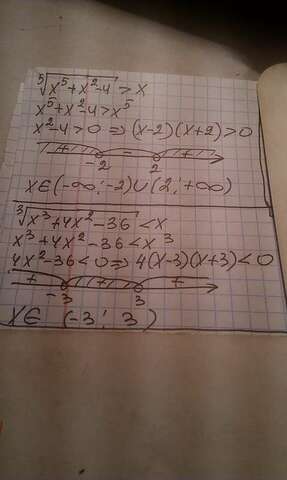 ⁵√(x⁵+x²-4) > x
x⁵+x²-4>x⁵
x²-4>0 ⇒ (x-2)(x+2)>0
+ - +
-2 2
x∈(-∞;-2)∪(2;+∞)
³√(x³+4x²-36) < x
x³+4x²-36<x³
4x²-36<0 ⇒ 4(x-3)(x+3)<0
+ - +
-3 3
x∈ (-3; 3)